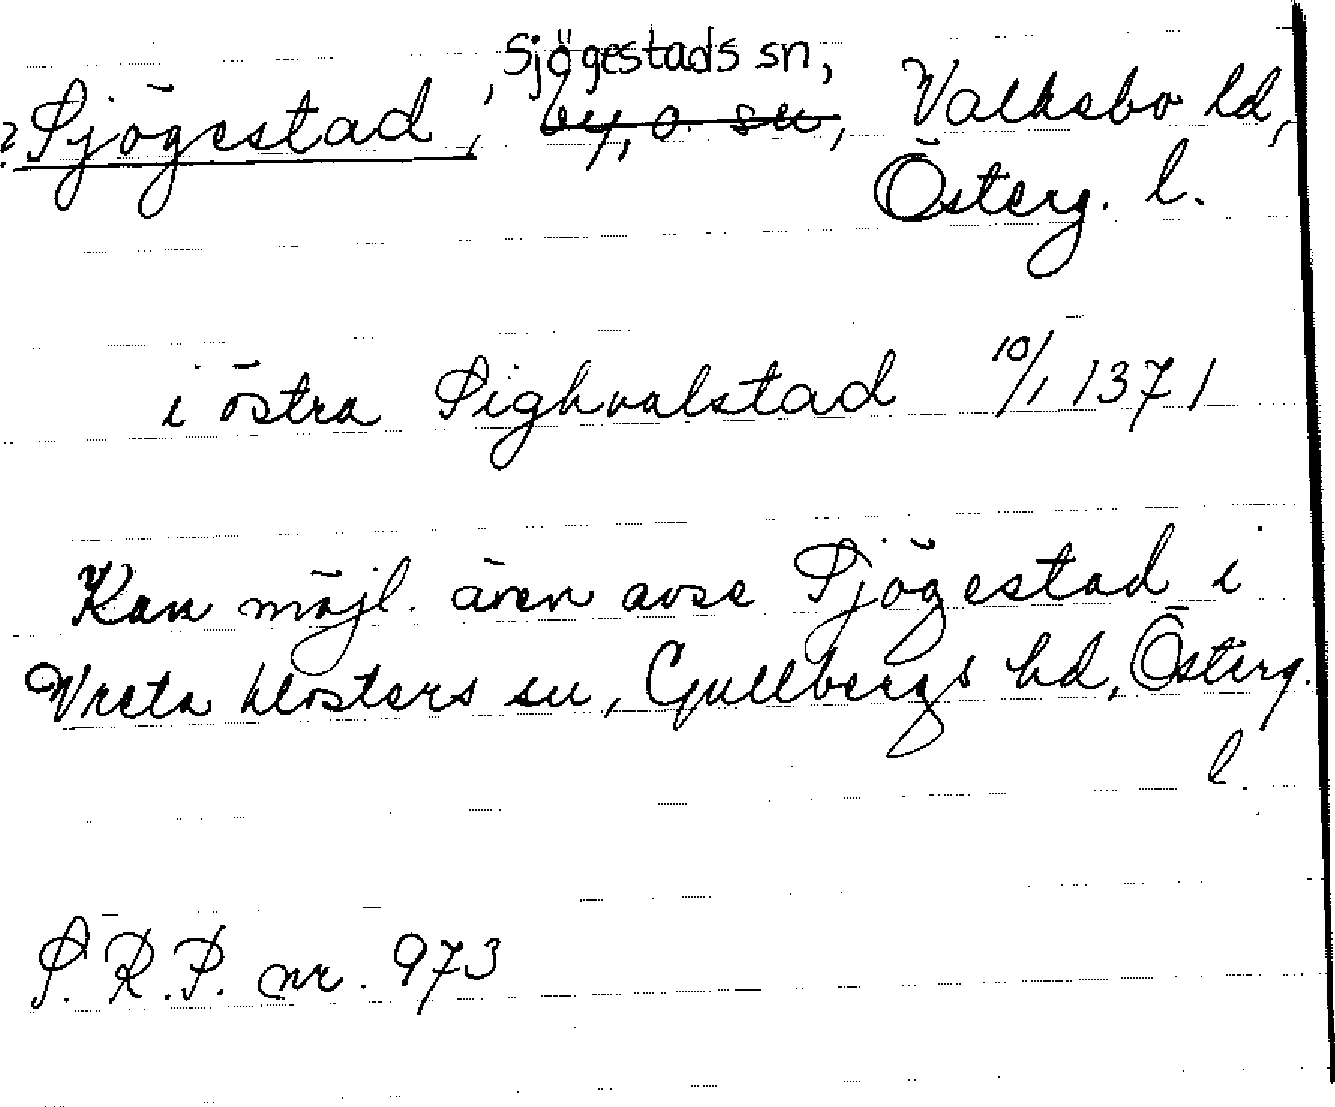 ? Sjögestad, Sjögestads sn, by, o. sn, Valkebo hd,
Österg. l.
i östra Sighvalstad 10/1 1371
Kan möjl. även avse Sjögestad i
Vreta klosters sn, Gullbergs hd, Österg.
l.
S.R.P. nr. 973